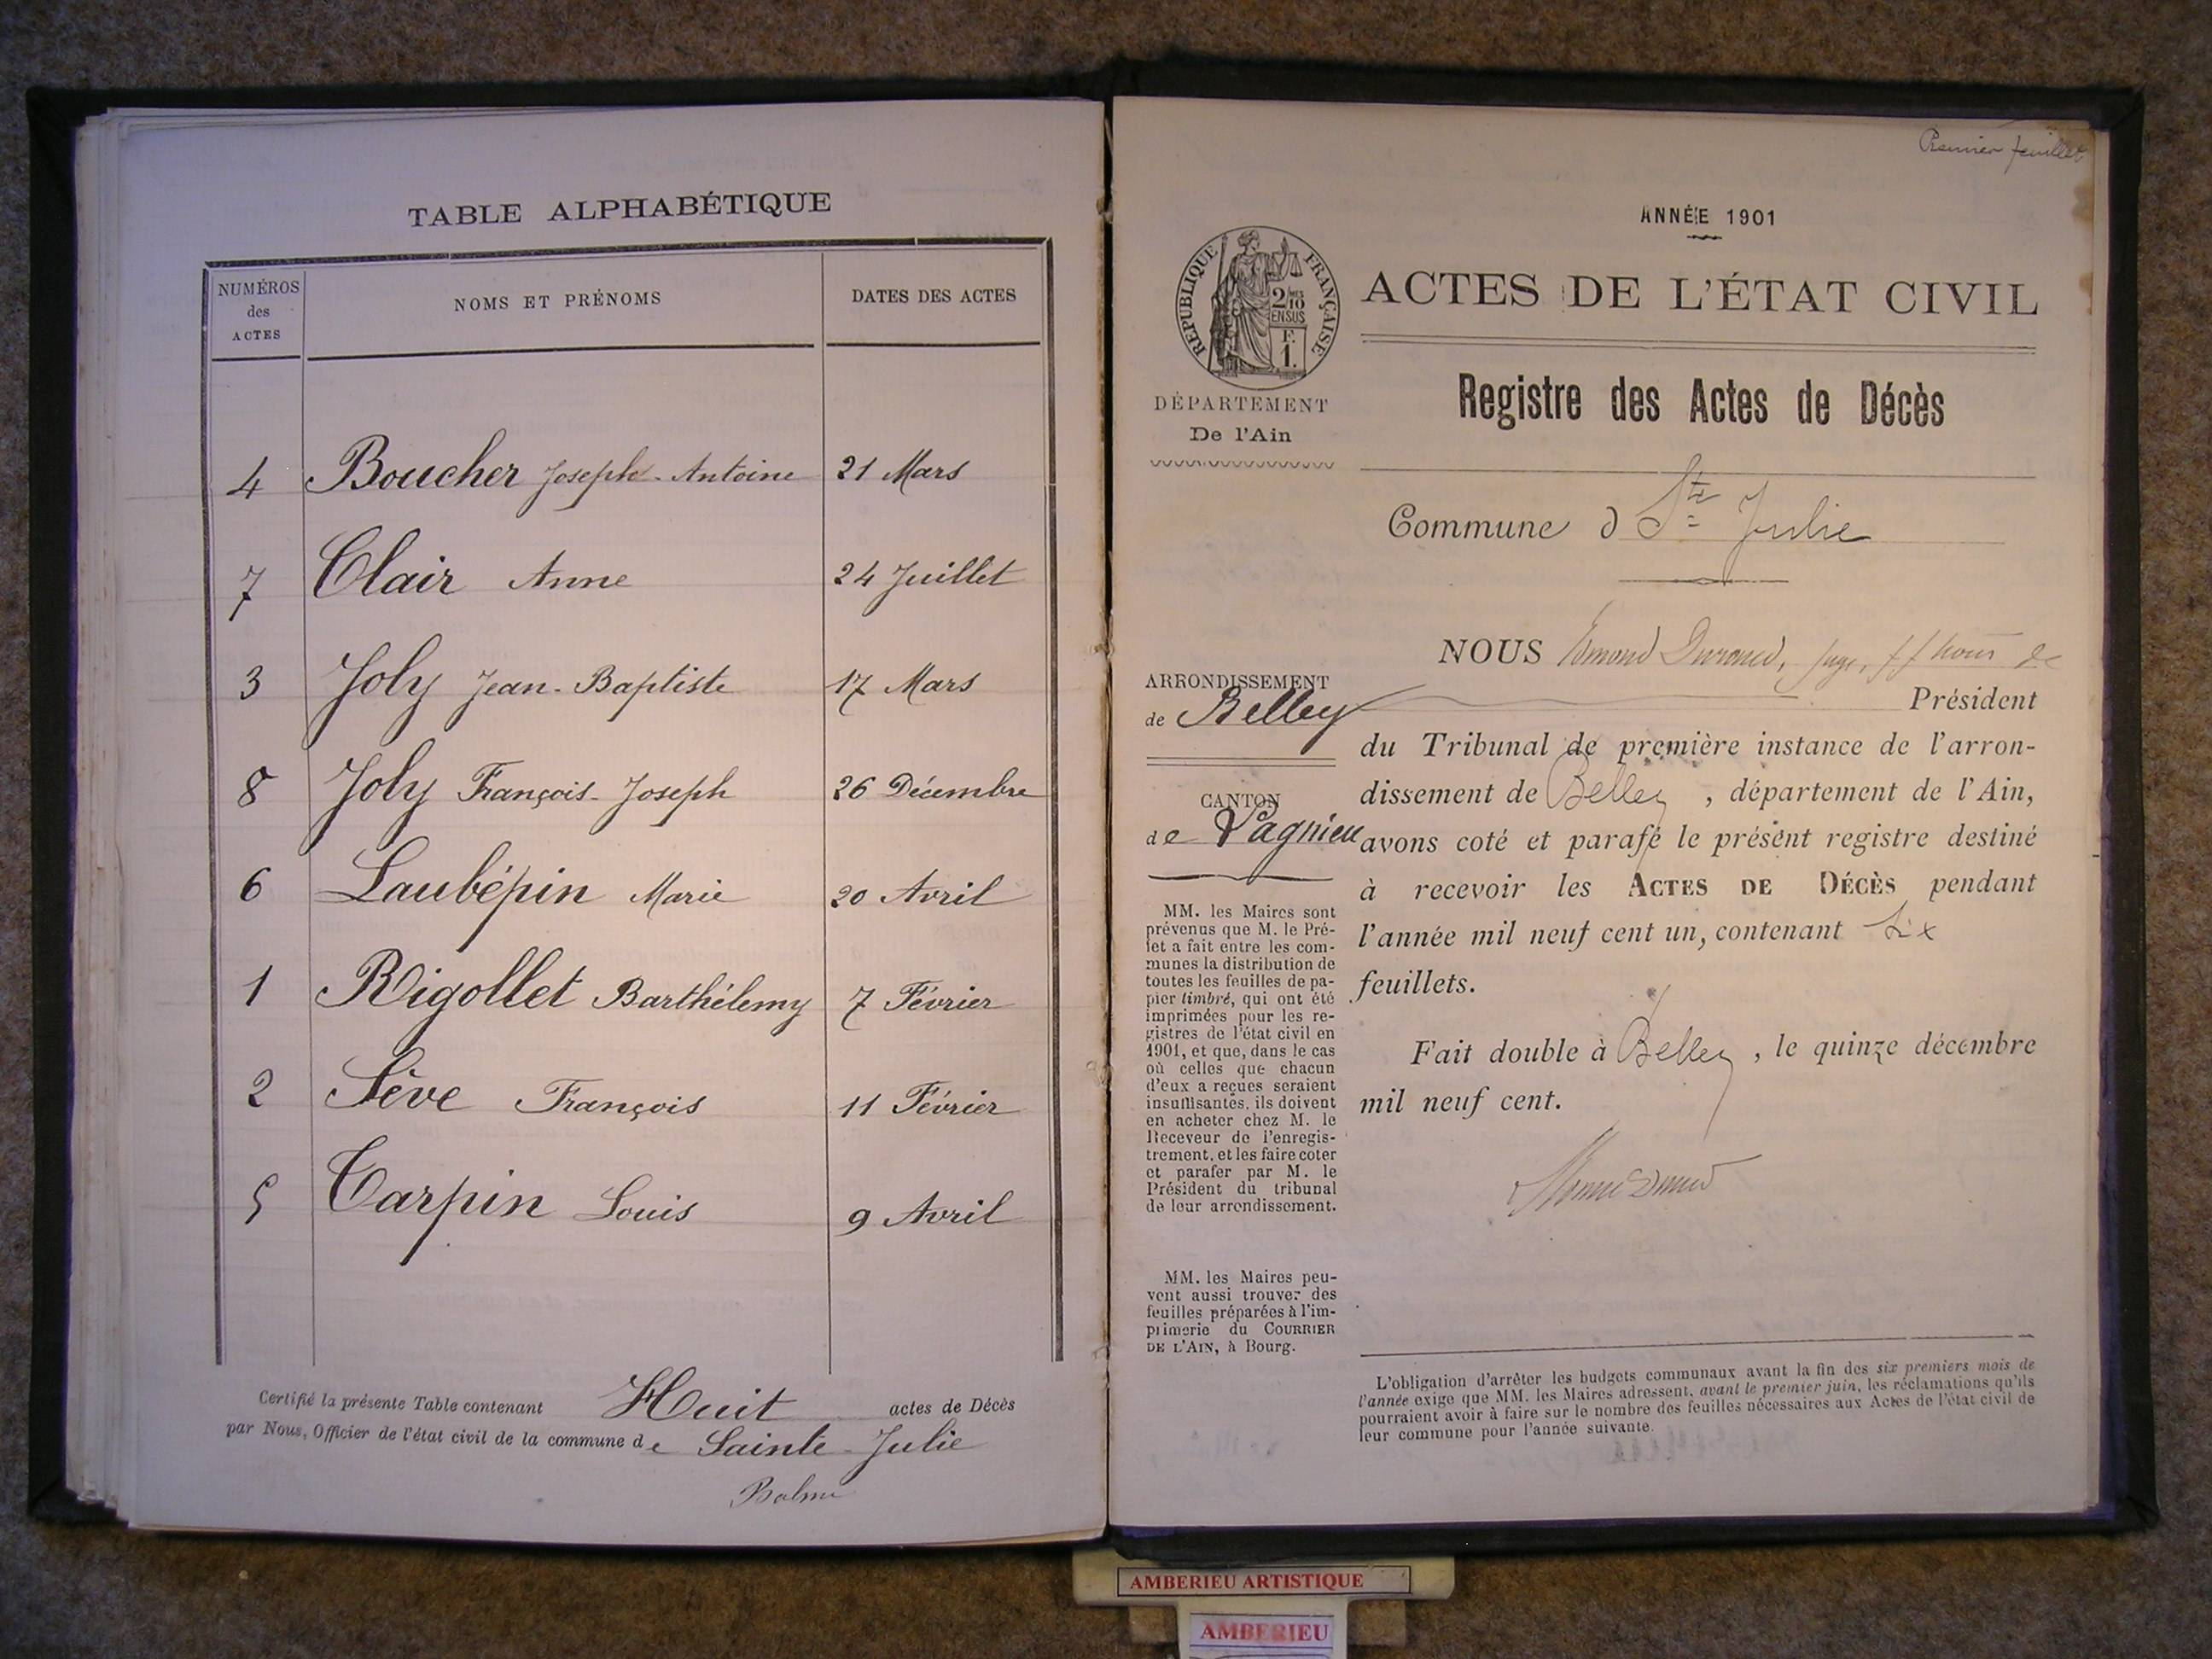 TABLE ALPHABÉTIQUE
NUMÉROS des ACTES NOMS ET PRÉNOMS DATES DES ACTES
4 Boucher Joseph-Antoine 21 Mars
7 Clair Anne 24 Juillet
3 Joly Jean-Baptiste 17 Mars
8 Joly François-Joseph 26 Décembre
6 Laubépin Marie 20 Avril
1 Rigollet Barthélemy 7 Février
2 Sève François 11 Février
5 Carpin Louis 9 Avril
Certifié la présente Table contenant Huit actes de Décès
par Nous, Officier de l'état civil de la commune de Sainte-Julie
Premier feuillet
ANNÉE 1901
RÉPUBLIQUE FRANÇAISE
2/10
EN SUS
F.
1.
ACTES DE L'ÉTAT CIVIL
DÉPARTEMENT
De l'Ain
Registre des Actes de Décès
Commune d Ste Julie
ARRONDISSEMENT
de Belley
CANTON
de Lagnieu
MM. les Maires sont
prévenus que M. le Pré-
fet a fait entre les com-
munes la distribution de
toutes les feuilles de pa-
pier timbré, qui ont été
imprimées pour les re-
gistres de l'état civil en
1901, et que, dans le cas
où celles que chacun
d'eux a reçues seraient
insuffisantes, ils doivent
en acheter chez M. le
Receveur de l'enregis-
trement, et les faire coter
et parafer par M. le
Président du tribunal
de leur arrondissement.
MM. les Maires peu-
vent aussi trouver des
feuilles préparées à l'im-
primerie du COURRIER
DE L'AIN, à Bourg.
NOUS Edmond Durand, juge, ff de
Président
du Tribunal de première instance de l'arron-
dissement de Belley, département de l'Ain,
avons coté et parafé le présent registre destiné
à recevoir les ACTES DE DÉCÈS pendant
l'année mil neuf cent un, contenant six
feuillets.
Fait double à Belley, le quinze décembre
mil neuf cent.
L'obligation d'arrêter les budgets communaux avant la fin des six premiers mois de
l'année exige que MM. les Maires adressent, avant le premier juin, les réclamations qu'ils
pourraient avoir à faire sur le nombre des feuilles nécessaires aux Actes de l'état civil de
leur commune pour l'année suivante.
AMBERIEU ARTISTIQUE
AMBERIEU